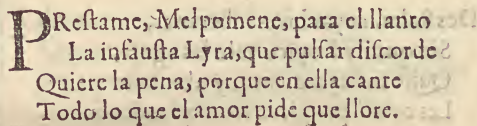 PReſtame, Melpomene, para el llanto
La infauſta Lyra, que pulſar diſcorde
Quiere la pena, porque en ella cante
Todo lo que el amor pide que llore.